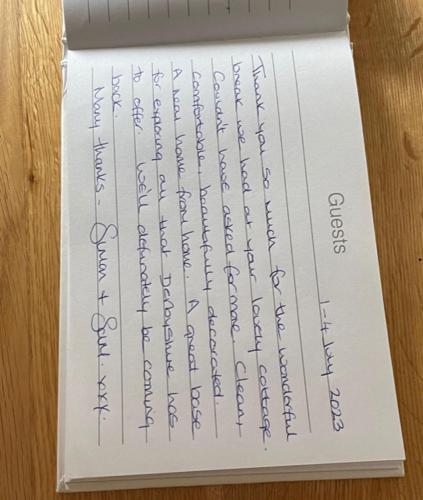 Guests
1-4 July 2023
Thank you so much for the wonderful
break we had at your lovely cottage.
Couldn't have asked for more. Clean,
comfortable, beautifully decorated.
A real home from home. A great base
for exploring all that Derbyshire has
to offer. We'll definately be coming
back.
Many thanks - Simon +